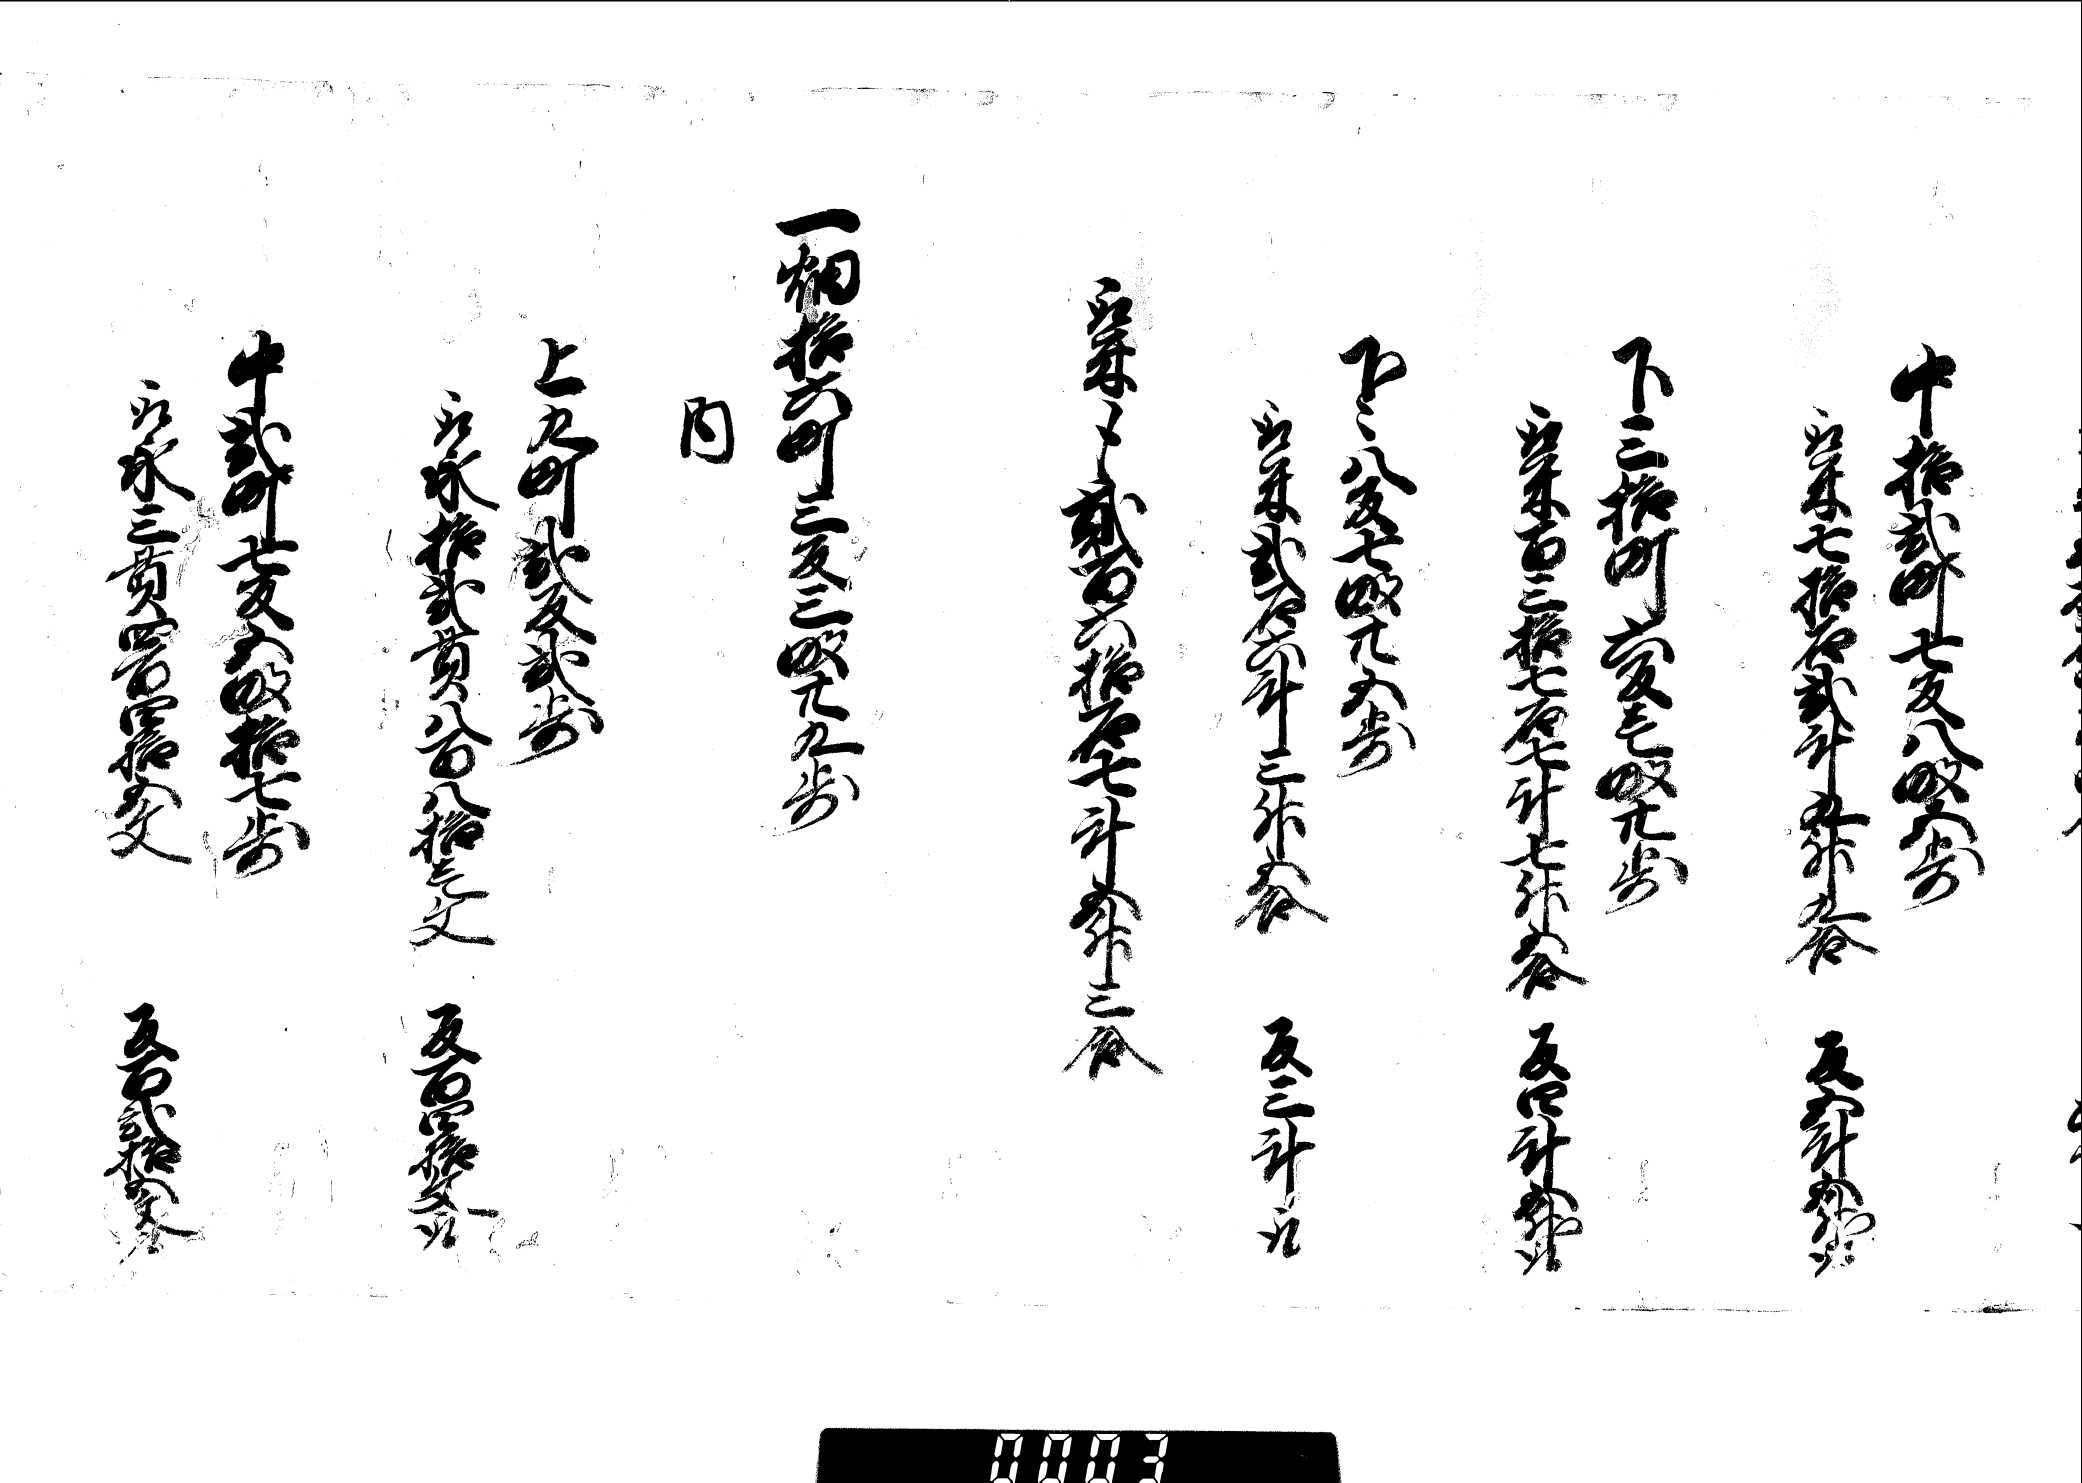 中拾弐町七反八畝五歩
取米七拾石弐斗九升九合　反五斗五升取
下三拾町六反壱畝廿歩
取米百三拾七石七斗七升五合　反四斗五升取
下〻八反七畝廿五歩
取米弐石六斗三升五合　反三斗取
取米〆貳百六拾石七斗五升三合
一畑拾六町三反三畝廿九歩
内
上九町弐反弐歩
取永拾弐貫八百八拾壱文　反百四拾文取
中弐町七反五畝拾七歩
取永三貫四百四拾五文　反百弐拾五文取
0003